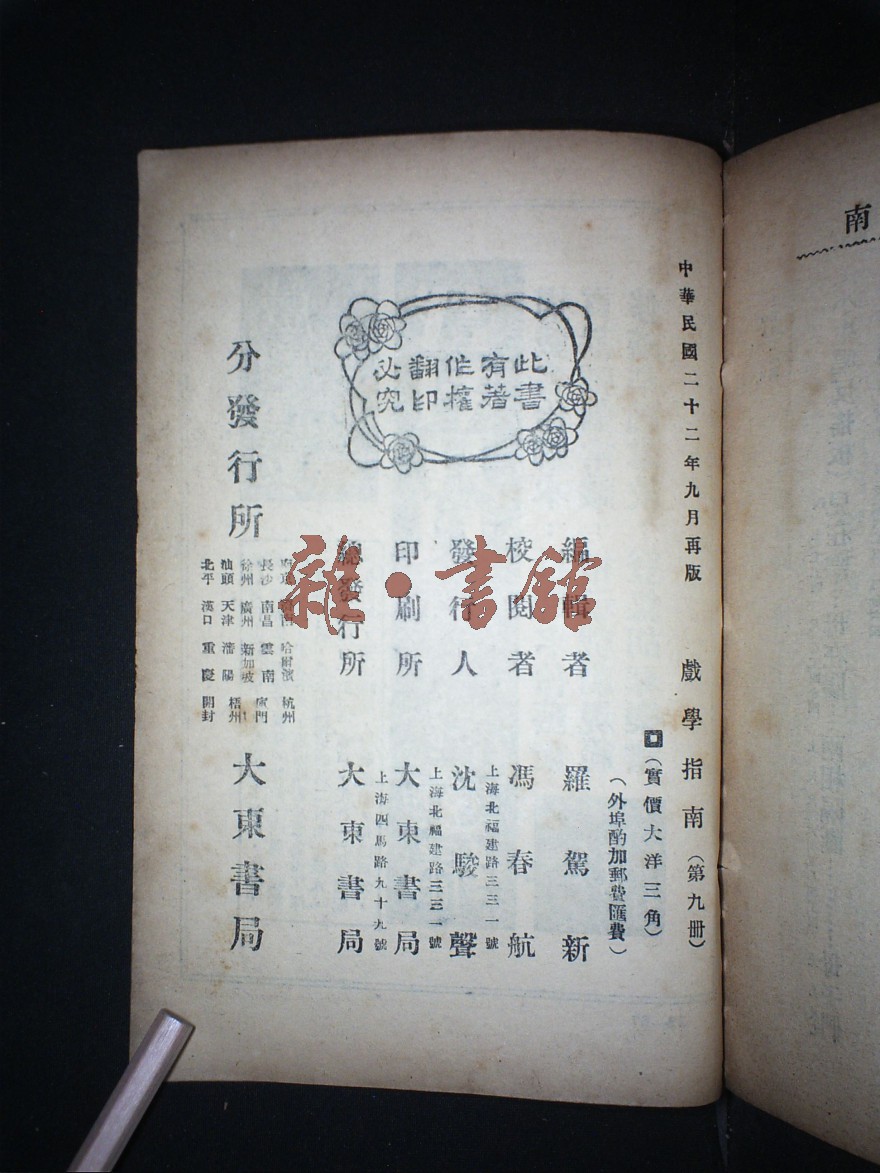 南
中華民國二十二年九月再版
戲學指南(第九冊)
(實價大洋三角)
(外埠酌加郵費匯費)
此書
有著
作權
翻印
必究
編輯者 羅駕新
校閱者 馮春航
上海北福建路三三一號
發行人 沈駿聲
上海北福建路三三一號
印刷所 大東書局
上海四馬路九十九號
總發行所 大東書局
哈爾濱 杭州
長沙 南昌 雲南 廈門
徐州 廣州 新加坡 梧州
汕頭 天津 瀋陽
北平 漢口 重慶 開封
分發行所 大東書局
雜·書館